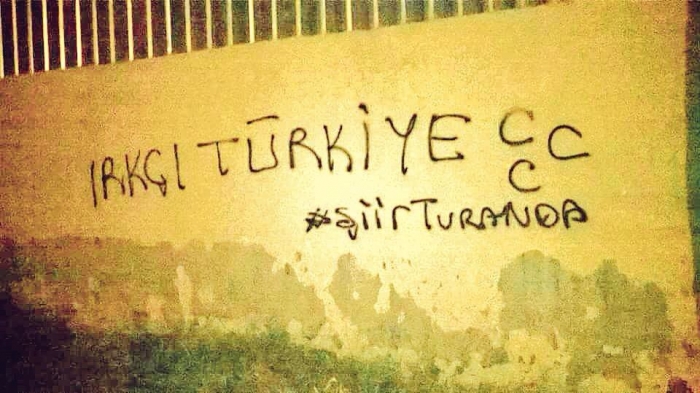 IRKÇI TÜRKİYE CCC
#şiirTURANDA